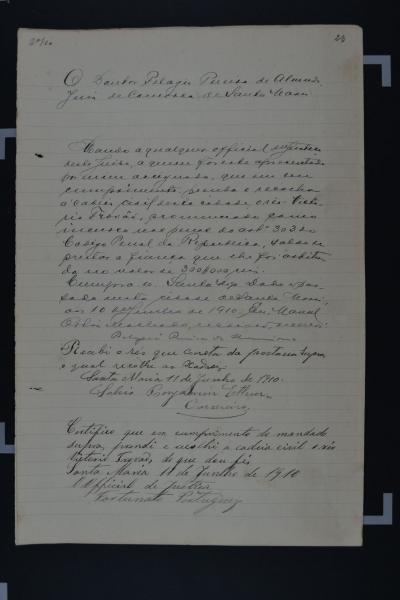 24
O Doutor Pelagio Pereira de Almeida
Juiz de Comarca de Santa Maria
Mando a qualquer official
deste Juizo, a quem for este apresentado
por mim assignado, que em seu
cumprimento, prenda e recolha
á Cadeia civil desta cidade o réo Victo
rio Trevão, pronunciado como
incurso nas penas do artº 303 do
Codigo Penal da Republica, salvo se
prestar a fiança que lhe foi arbitra
da no valor de
Cumpra-se. Dado e pas
sado nesta cidade de Santa Maria,
aos 10 de Junho de 1910. Eu, Manoel
Recebi o réo que consta da portaria supra
o qual recolhi ao Xadrez
Santa Maria 11 de Junho de 1910.
Benjamin
Carcereiro
Certifico que em cumprimento do mandado
supra, prendi e recolhi a cadeia civil o réo
Victorio Trevão do que dou fé
Santa Maria 11 de Junho de 1910
O Official de justiça
Fortunato Portuguez